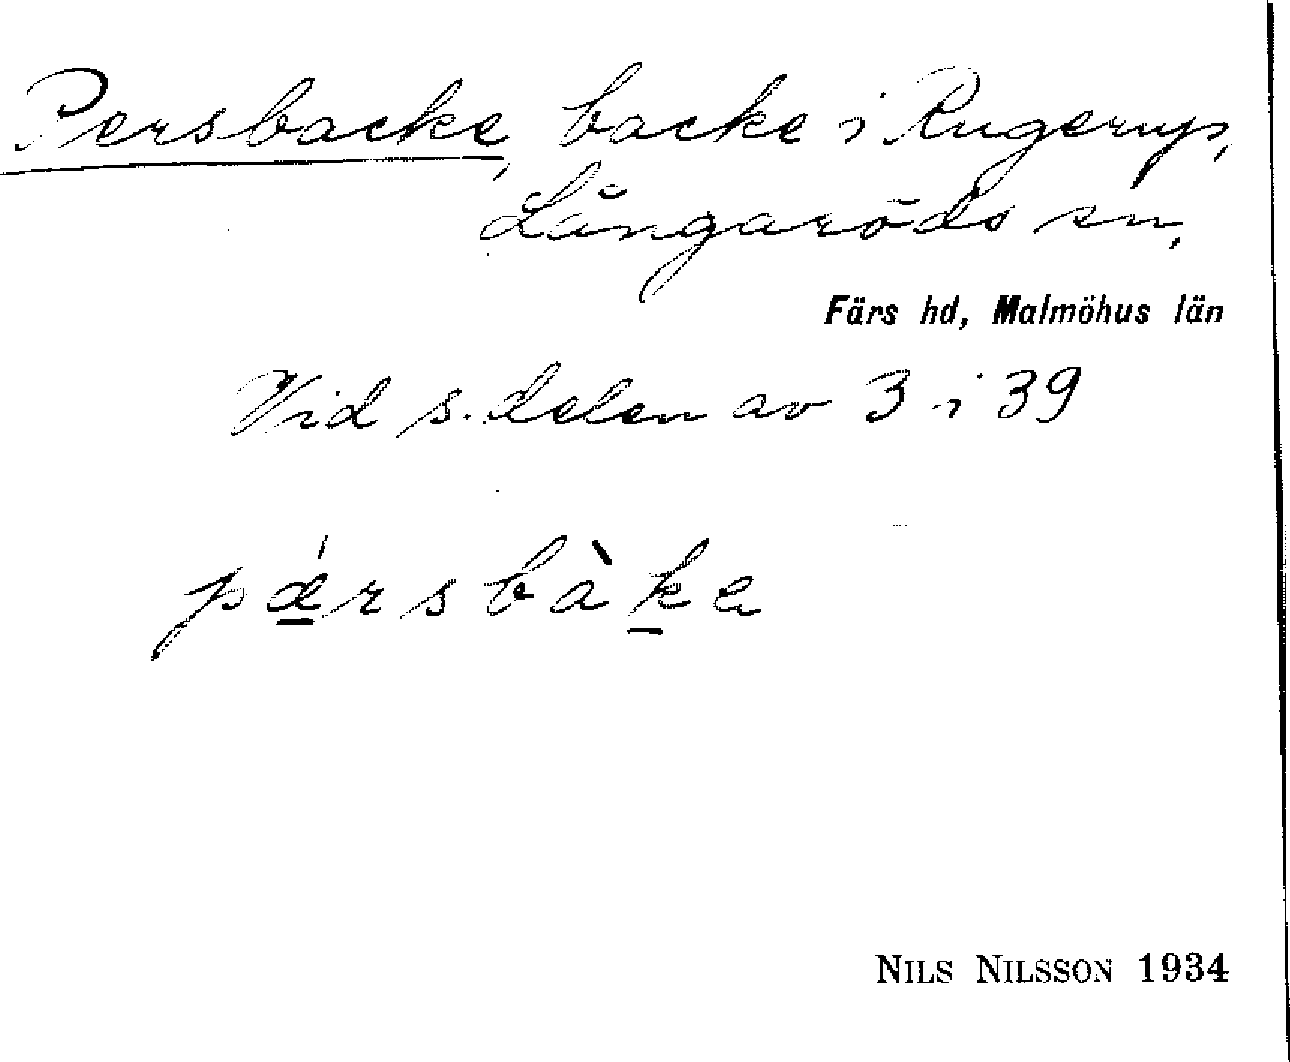 Persbacke, backe i Rugerup,
Långaröds sn,
Färs hd, Malmöhus län
Vid s. delen av 3 i 39
pǽrsbàkа
NILS NILSSON 1934